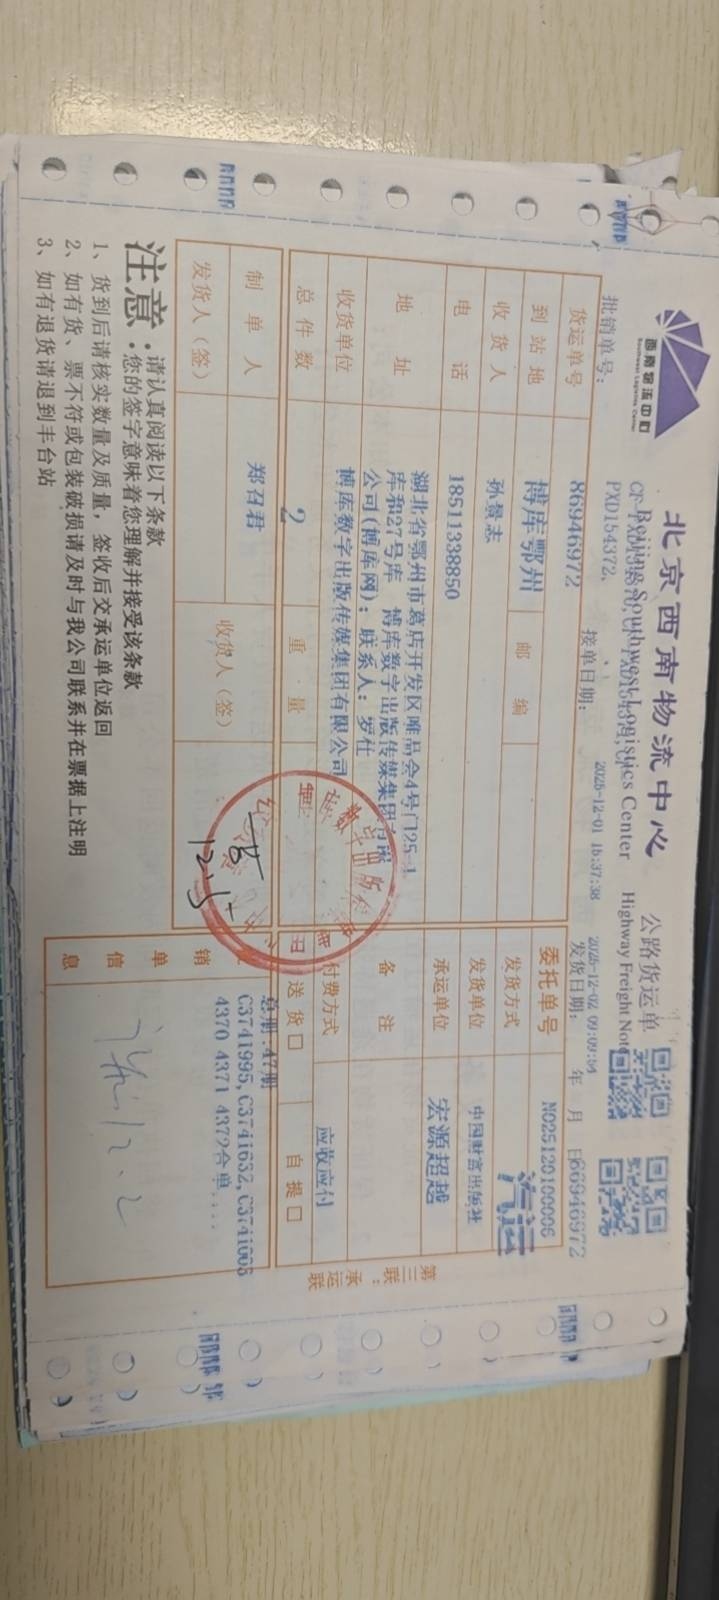 西南物流中心
Southwest Logistics Center
北京西南物流中心
Beijing Southwest Logistics Center
公路货运单
Highway Freight Note
批销单号：
PXD154372,
接单日期：
2025-12-01 15:37:38
2025-12-02 09:09:54
发货日期： 年 月 日
66946972
货运单号 86946972
委托单号 NO25120100006
到站地 博库鄂州 邮编
发货方式 汽运
收货人 孙景志
发货单位 中国财富出版社
电话 18511338850
承运单位 宏源超越
地址 湖北省鄂州市葛店开发区唯品会4号门25-1
库和27号库 博库数字出版传媒集团有限
公司(博库网)；联系人：罗仕
备注
收货单位 博库数字出版传媒集团有限公司
付费方式 应收应付
总件数 2 重量
送货□ 自提□
制单人 郑召君
收货人（签）
发货人（签）
销单信息
总册:47册
C3741995,C3741632,C3741005
4370 4371 4372合单,...
12.2
第三联：承运联
注意：
请认真阅读以下条款
您的签字意味着您理解并接受该条款
1、货到后请核实数量及质量，签收后交承运单位返回
2、如有货、票不符或包装破损请及时与我公司联系并在票据上注明
3、如有退货请退到丰台站